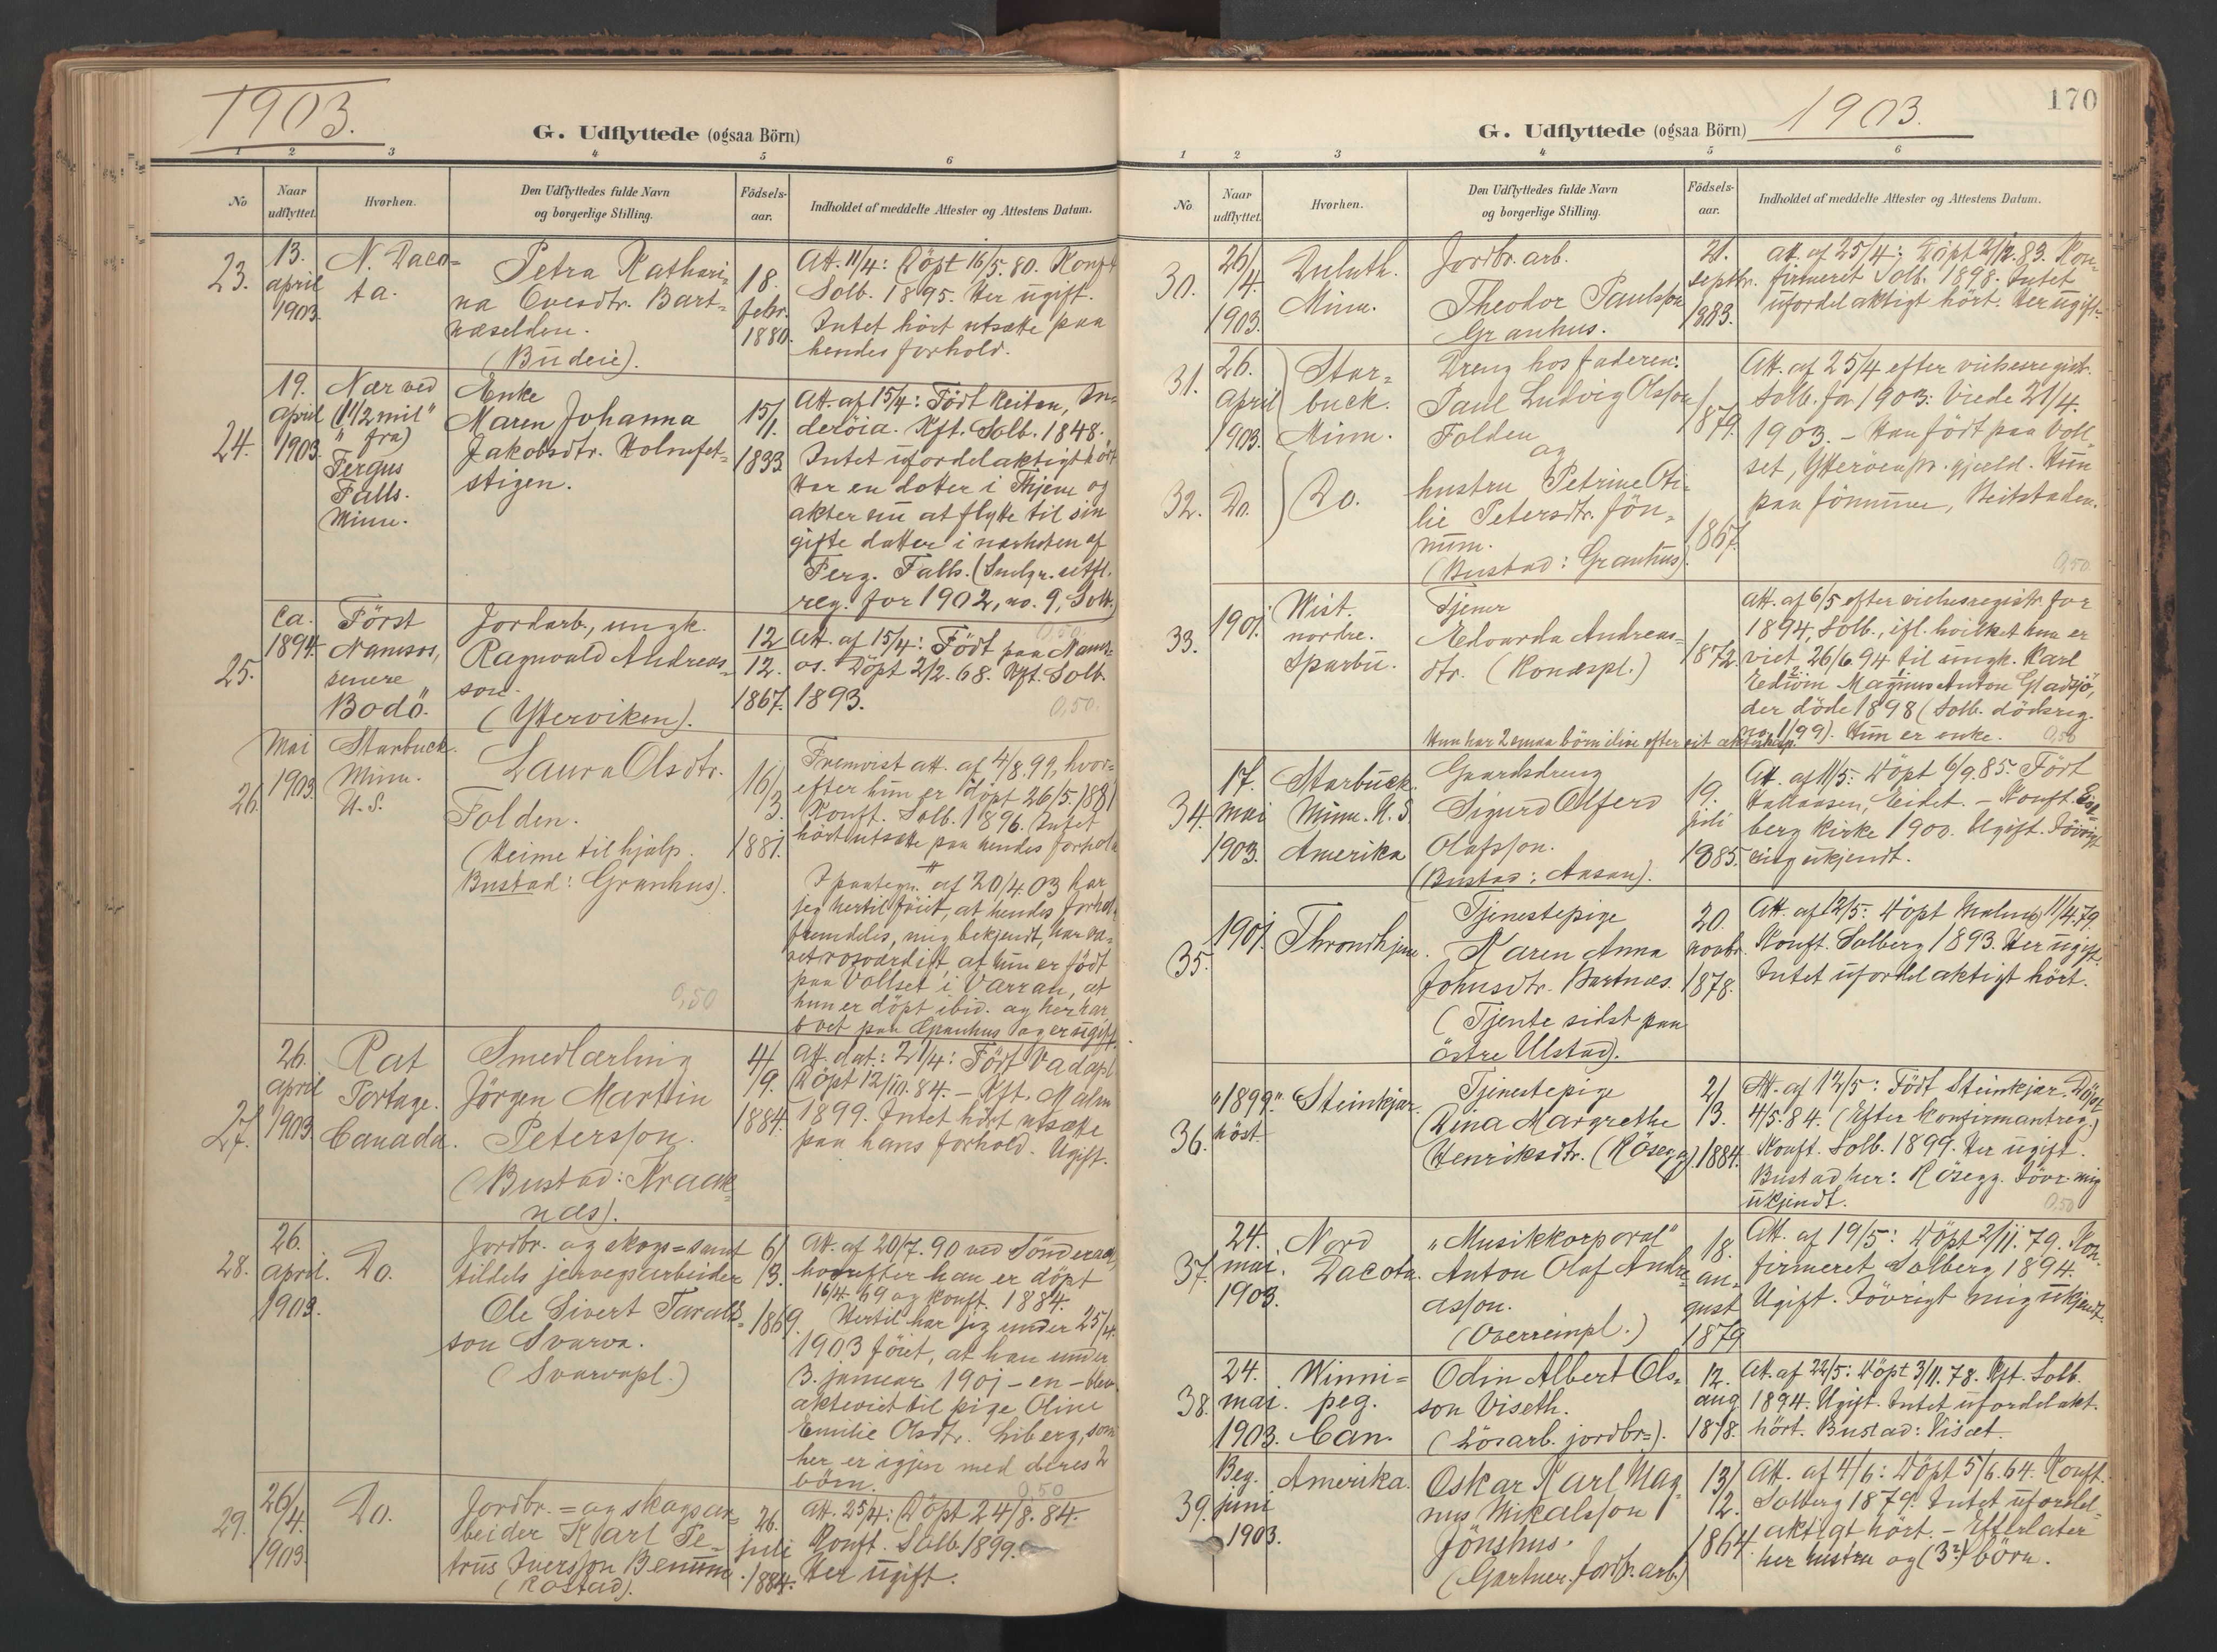 1903.
G. Udflyttede (ogsaa Börn)
1 2 3 4 5 6
No
Naar udflyttet.
Hvorhen.
Den Udflyttedes fulde Navn
og borgerlige Stilling.
Födsels-
aar.
Indholdet af meddelte Attester og Attestens Datum.
23.
13.
april
1903
N. Daco-
ta.
Petra Kathari-
na Ovesdtr. Bart-
næselden.
(Budeie).
18.
febr.
1880.
Att. 11/4: Döpt 16/5. 80. Konft
Solb. 1895. Her ugift.
Intet hört utsætte paa
hendes forhold.
24.
19.
april
1903.
Nær ved
(1 1/2 mil"
" fra)
Fergus
Falls.
Minn.
Enke
Maren Johanna
Jakobsdtr. Holmfet-
stigen.
15/
1.
1833
Att. af 15/4: Födt Keitan, In-
deröia. Kft. Solb. 1848.
Intet ufordelaktigt hört
Har en dotter i Thjem og
akter nu at flytte til sin
gifte datter i nærheten af
Ferg. Falls. (Smlgn. utfl.
reg. for 1902, no. 9, Solb.)
0,50
25.
ca.
1894.
Först
Namsos,
senere
Bodö.
Jordarb., ungk.
Ragnvald Andreas-
son.
(Ytterviken).
12
12.
1867.
Att. af 15/4: Födt paa Nams-
os. Döpt 2/2. 68. Kft. Solb.
1893.
0,50.
26.
Mai
1903
Starbuck.
Minn.
U. S.
Laura Olsdtr.
Folden.
(Heime til hjælp.
Bustad: Granhus).
16/
3.
1881.
Fremvist att. af 4/8. 99, hvor-
efter hun er döpt 26/5. 1881
Konft. Solb. 1896. Intet
hört utsætte paa hendes forhold
I paategn. af 20/4 03 har
jeg hertil föiet, at hendes forhold
fremdeles, mig bekjendt, har væ-
set rosværdigt, at hun er födt
paa Vollset i Varran, at
hun er döpt ibid. og her har
boet paa Granhus og er ugift.
0,50
27.
26.
april
1903
Rat
Portage.
Canada.
Smedlærling
Jörgen Martin
Petersson.
(Bustad: Kraak-
næs).
4/
9.
1884.
Att. dat.: 21/4: Födt Vadapl
Döpt 12/10. 84. - Kft. Malm
1899. Intet hört utsætte
paa hans forhold. Ugift.
28.
26.
april.
1903.
Do.
Jordbr. og skogs= samt
tildels jernvegsarbeider
Ole Sivert Taralds-
son Svarva.
(Svarvapl.)
6/
3.
1869.
Att. af 20/7. 90 ved Sönderaal,
hvorefter han er döpt
16/4. 69 og konft. 1884.
Hertil har jeg under 25/4.
1903 föiet, at han under
3. januar 1901 - en - blev
akteviet til pige Oline
Emilie Olsdtr. Liberg, som
her er igjen med deres 2
börn.
0,50
29.
26/
4.
1903.
Do.
Jordbr. = og skogsar-
beider Karl Pe-
trus Iversson Benum.
(Rostad).
26.
juli
1884.
Att. 25/4: Döpt 24/8. 84.
Konft. Solb. 1899.
Her ugift.
G. Udflyttede (ogsaa Börn)
1903.
170
1 2 3 4 5 6
No
Naar
udflyttet.
Hvorhen.
Den Udflyttedes fulde Navn
og borgerlige Stilling.
Födsels-
aar.
Indholdet af meddelte Attester og Attestens Datum.
30.
26/
4.
1903.
Duluth.
Minn.
Jordbr. arb.
Theodor Paulsson
Granhus.
21.
septbr.
1883.
Att. af 25/4: Döpt 2/12. 83. Kon-
firmeret Solb. 1898. Intet
ufordelaktigt hört. Her ugift.
31.
26.
April
1903.
Star-
buck.
Minn.
Dreng hos faderen:
Paul Ludvig Olsson
Folden
og
1879.
Att. af 25/4 efter vielsesregistr.
Solb. for 1903: Viede 21/4.
1903. - Han födt paa Voll-
set, Ytteröens pr. gjæld. Hun
paa Jönnum, Beitstaden.
32.
Do.
Do.
hustru Petrine Oti-
lie Petersdtr. Jön-
num.
(Bustad: Granhus).
1867.
0,50
33.
1901.
Hist.
nordre.
Sparbu.
Tjener
Edvarda Andreas-
dtr. (Ronæspl.)
1872.
Att. af 6/5 efter vielsesregistr. for
1894, Solb., ifl. hvilket hun er
viet 26/6 94 til ungk. Karl
Edvin Magnus Anton Gladsjö,
der döde 1898 (Solb. dödsreg.
no. 1/99). Hun er enke.
0,50
Hun har 2 smaa börn i live efter sit ekteskap.
34.
17.
mai
1903.
Starbuck.
Minn. U. S.
Amerika
Gaardsdreng
Sigurd Alferd
Olafsson.
(Bustad: Aasan).
19.
juli
1885.
Att. af 11/5: Döpt 6/9. 85. Födt
Haltaasen, Eidet. - Konft. Eids-
berg kirke 1900. Ugift. Iövrigt
mig ukjendt.
35.
1901.
Throndhjem.
Tjenestepige
Karen Anna
Johnsdtr. Bartnæs.
(Tjente sidst paa
östre Ulstad).
20.
novbr.
1878.
Att. af 12/5: Döpt Malmö 11/4. 79.
Konft. Solberg 1893. Her ugift.
Intet ufordelaktigt hört.
36.
"1899."
höst.
Steinkjær.
Tjenestepige
Dina Margrethe
Henriksdtr. (Rösegg).
2/
3.
1884.
Att. af 12/5: Födt Steinkjær. Döpt
4/5. 84. (Efter konfirmantreg.)
Konft. Solb. 1899. Her ugift.
Bustad her: Rösegg. Iövr. mig
ukjendt.
0,50
37.
24.
mai.
1903.
Nord
Dacota.
"Musikkorporal"
Anton Olaf Andre-
asson.
(Overreinpl.)
18.
au-
gust
1879
Att. af 19/5: Döpt 2/11. 79. Kon-
firmeret Solberg 1894.
Ugift. Iövrigt mig ukjendt.
38.
24.
mai.
1903.
Winni-
peg.
Can.
Odin Albert Ols-
son Viseth.
(Lösarb. jordbr=).
12.
aug.
1878.
Att. af 22/5: Döpt 3/11. 78. Kft. Solb.
1894. Ugift. Intet ufordelakt.
hört. Bustad: Viset.
39.
Beg.
juni
1903.
Amerika.
Oskar Karl Mag-
nus Mikalsson
Jönshus.
(Gartner. Jordbr. arb.)
13/
12.
1864.
Att. af 4/6: Döpt 5/6. 64. Konft.
Solberg 1879. Intet ufordel-
aktigt hört. - Efterlater
her hustru og (3?) börn.